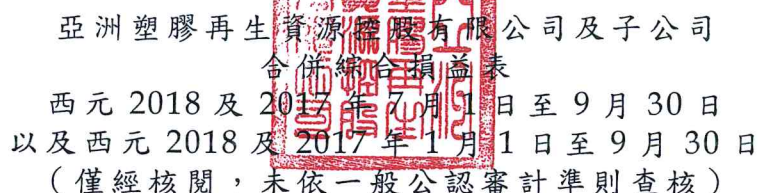 亞洲塑膠再生資源控股有限公司及子公司
合併綜合損益表
西元 2018 及 2017 年 7 月 1 日至 9 月 30 日
以及西元 2018 及 2017 年 1 月 1 日至 9 月 30 日
（僅經核閱，未依一般公認審計準則查核）